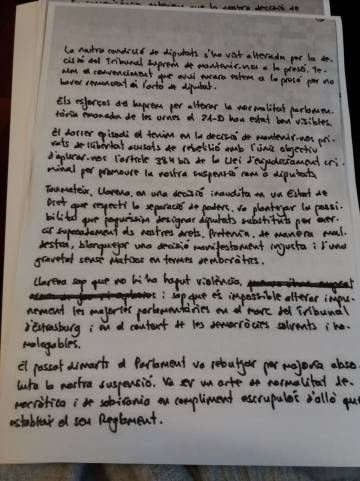 La nostra condició de diputats s'ha vist alterada per la de-
cisió del Tribunal Suprem de mantenir-nos a la presó. Te-
nim el convenciment que avui encara estem a la presó per no
haver renunciat a l'acta de diputat.
Els esforços del Suprem per alterar la normalitat parlamen-
tària emanada de les urnes el 21-D han estat ben visibles.
El darrer episodi el tenim en la decisió de mantenir-nos pri-
vats de llibertat acusats de rebel·lió amb l'únic objectiu
d'aplicar-nos l'article 384 bis de la Llei d'enjudiciament cri-
minal per promoure la nostra suspensió com a diputats
Tanmateix, Llarena, en una decisió inaudita en un Estat de
Dret que respecti la separació de poders, va plantejar la possi-
bilitat que poguéssim designar diputats substituts per exer-
cir suposadament els nostres drets. Pretenia, de manera mal-
destra, blanquejar una decisió manifestament injusta i d'una
gravetat sense matisos en termes democràtics.
Llarena sap que no hi ha hagut violència,
i sap que és impossible alterar impu-
nement les majories parlamentàries en el marc del Tribunal
d'Estrasburg i en el context de les democràcies solvents i ho-
mologables.
El passat dimarts el Parlament va rebutjar per majoria abso-
luta la nostra suspensió. Va ser un acte de normalitat de-
mocràtica i de sobirania en compliment escrupolós d'allò que
estableix el seu Reglament.